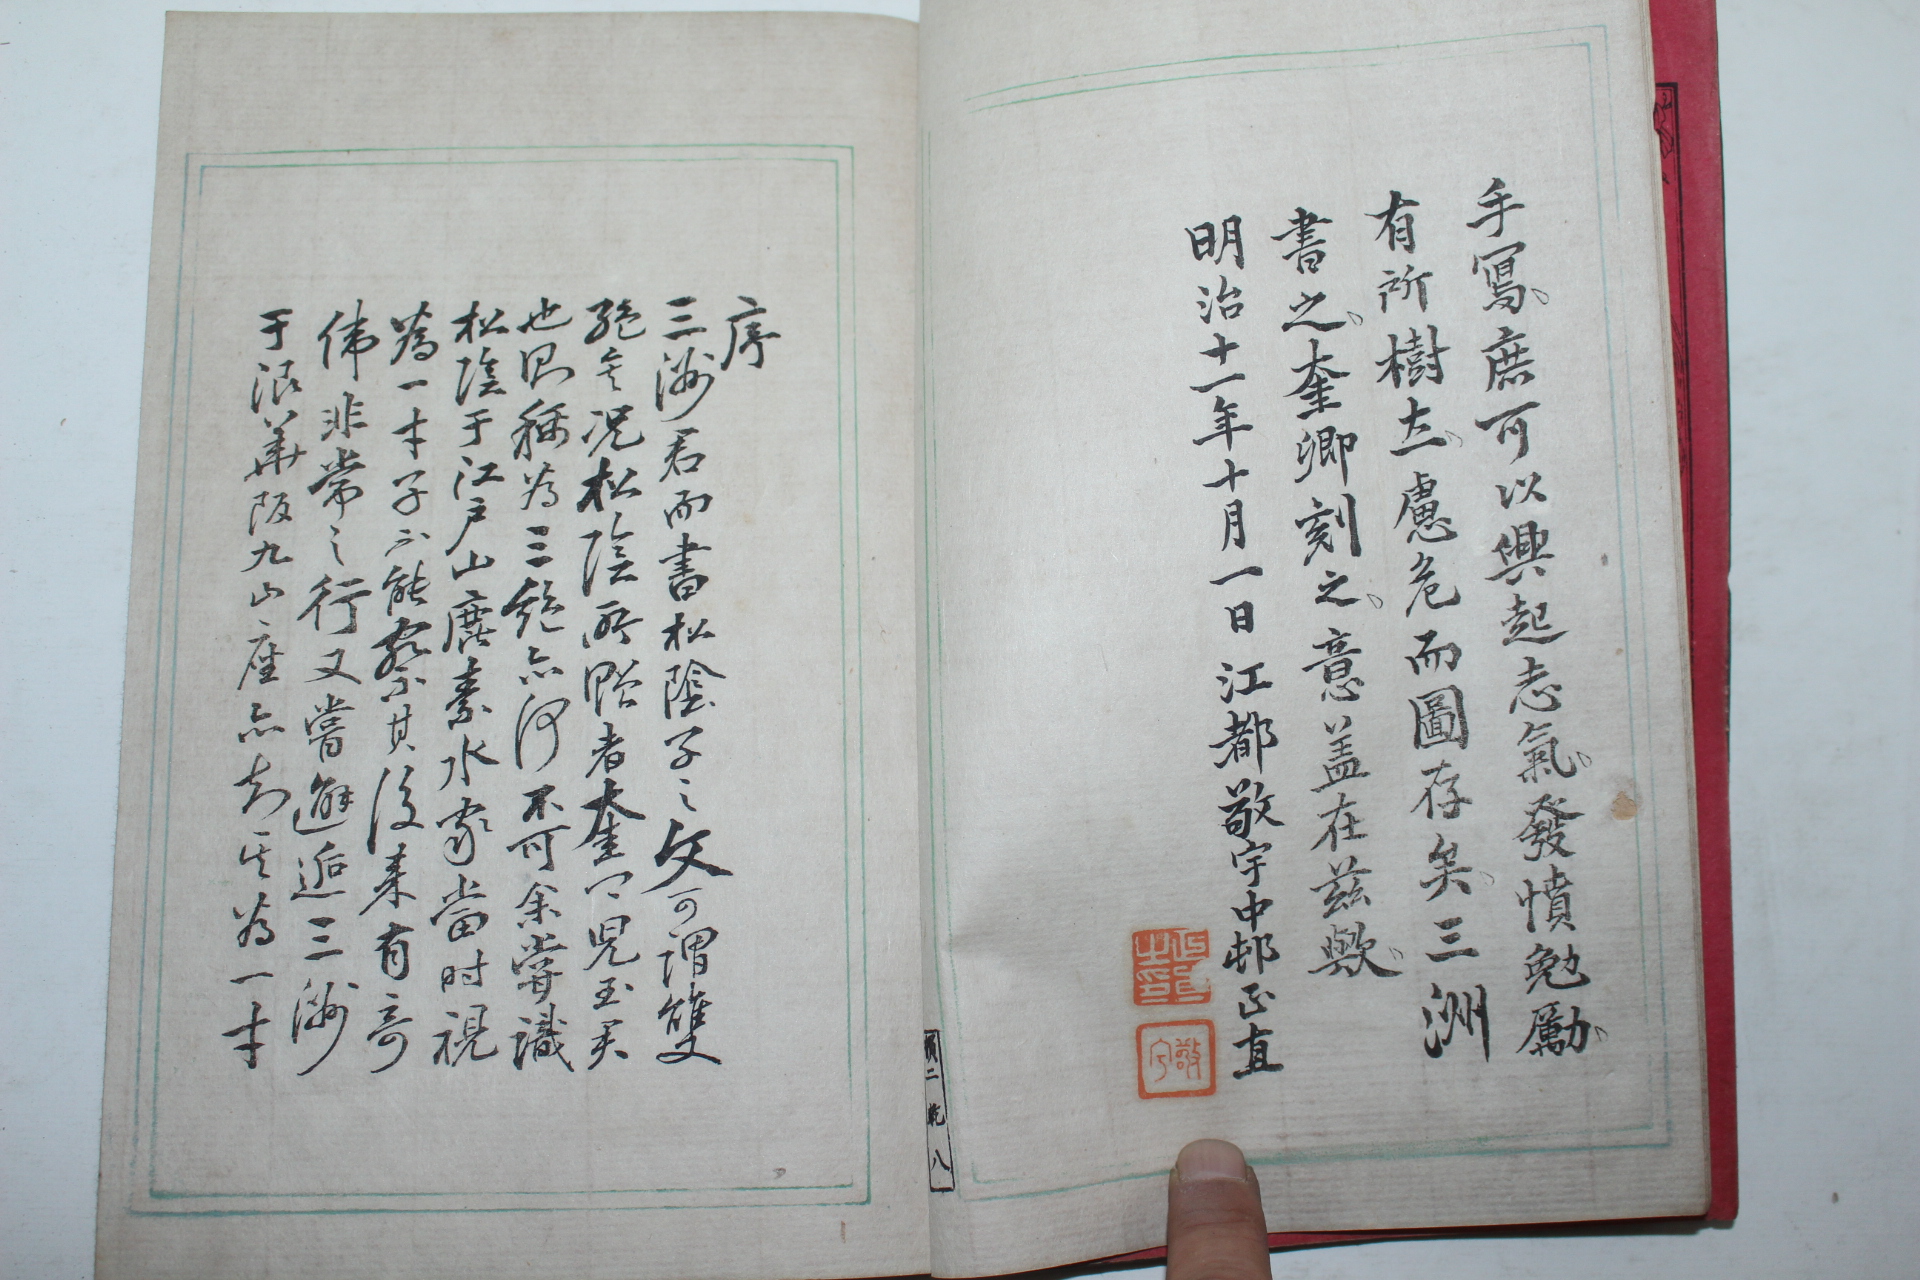 手寫、庶可以興起志氣、發憤勉勵、
有所樹立、慮危而圖存矣、三洲
書之、奎卿刻之、意蓋在茲歟、
明治十一年十月一日江都敬宇中邨正直
正直之印
敬宇
乾 八
序
三洲君而書松陰子之文可謂雙
絕矣況松陰所贈者奎堂兒玉君
也則稱為三絕亦何不可余嘗識
松陰于江戶山鹿素水家當時視
為一才子不能察其後來有奇
偉非常之行又嘗邂逅三洲
于浪華阪九山座亦知其為一才